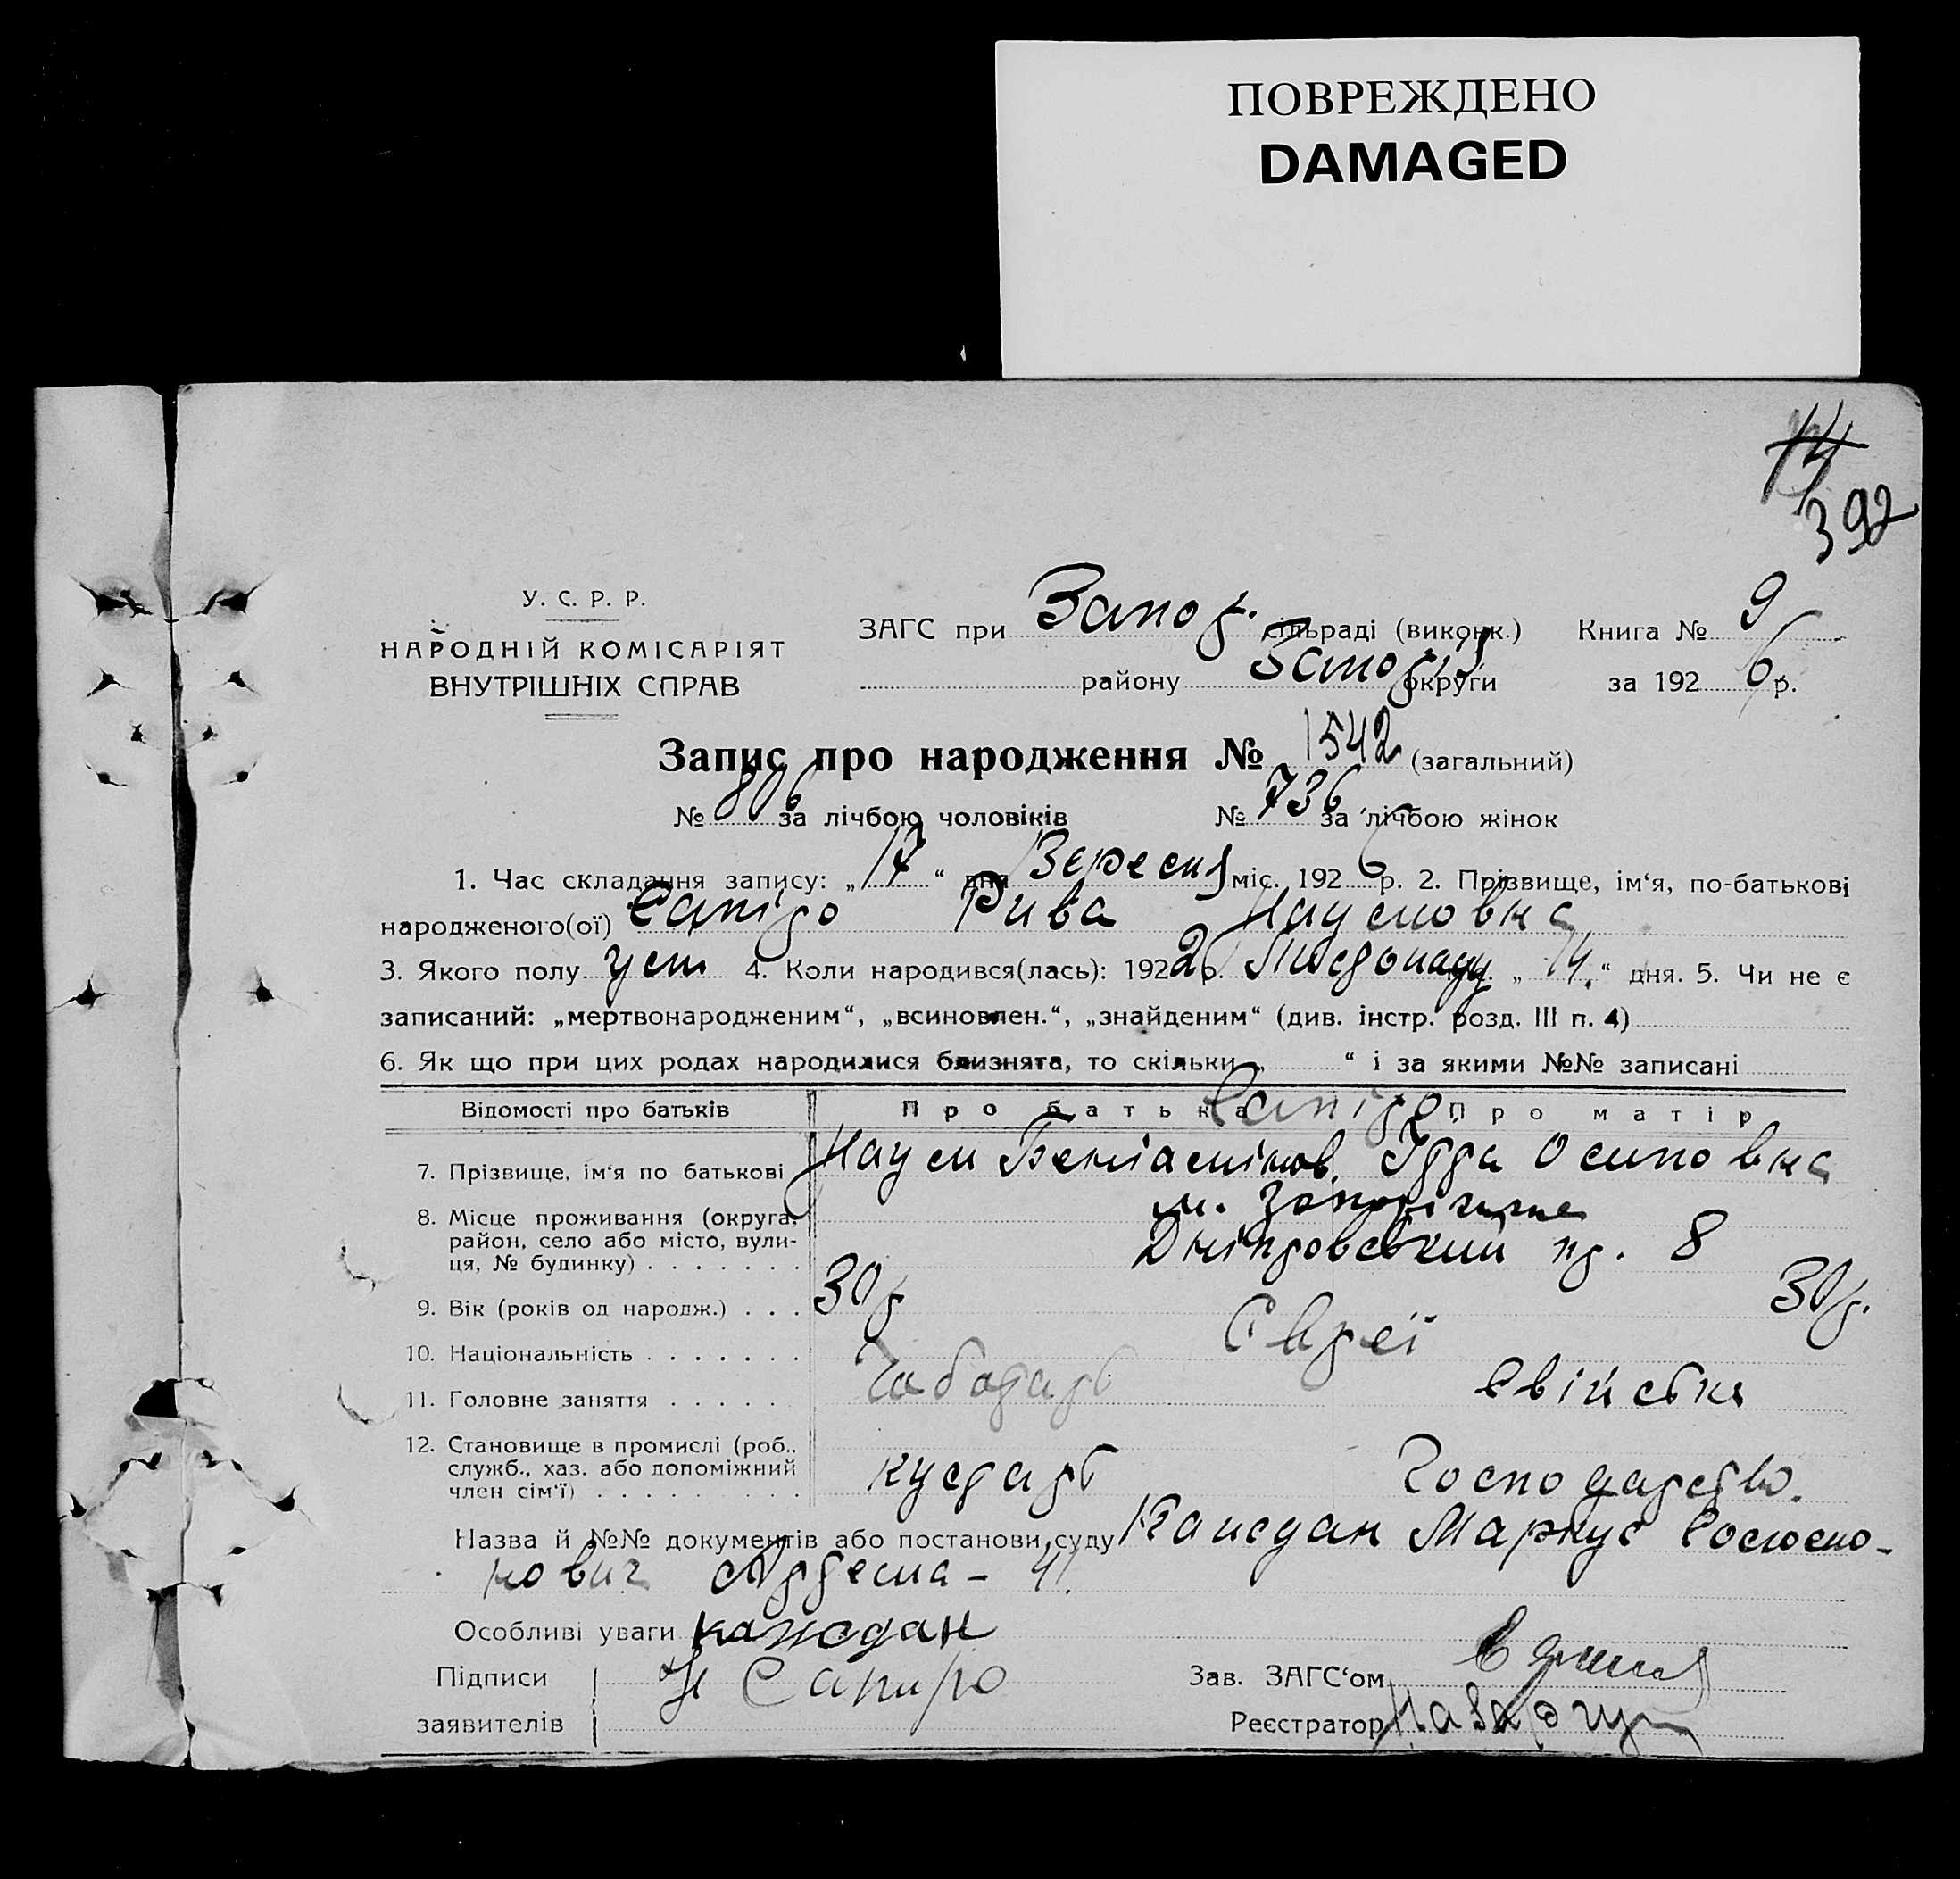 ПОВРЕЖДЕНО
DAMAGED
14
392
У. С. Р. Р.
НАРОДНІЙ КОМІСАРІЯТ
ВНУТРІШНІХ СПРАВ
ЗАГС при Запор. сільраді (виконк.) Книга № 9
району Запоріз округи за 1926 р.
Запис про народження № 1542 (загальний)
№ 806 за лічбою чоловіків № 736 за лічбою жінок
1. Час складання запису: „17“ дня Вересня міс. 1926 р. 2. Прізвище, ім‘я, по-батькові
народженого(ої) Сапіро Рива Наумовна
3. Якого полу жін 4. Коли народився(лась): 1922 р. Листопаду „14.“ дня. 5. Чи не є
записаний: „мертвонародженим“, „всиновлен.“, „знайденим“ (див. інстр. розд. III п. 4)
6. Як що при цих родах народилися близнята, то скільки „ “ і за якими №№ записані
Відомості про батьків Про батька Про матір
Сапіро
7. Прізвище, ім‘я по батькові Наум Беніамінов. Ідда Осиповна
8. Місце проживання (округа, район, село або місто, вулиця, № будинку) . . . . . . . м. Запоріжже
Дніпровський пр. 8
9. Вік (років од народж.) . . . 30 р 30 р.
10. Національність . . . . . . . Євреї
11. Головне заняття . . . . . Чоботарь Свійське
12. Становище в промислі (роб.. служб., хаз. або допоміжний член сім‘ї) . . . . . . . . . кустарь Господарство.
Назва й №№ документів або постанови суду Каждан Маркус Соломо-
нович Артема - 41.
Особливі уваги каждан
Підписи Н Сапиро Зав. ЗАГС‘ом
заявителів Реєстратор